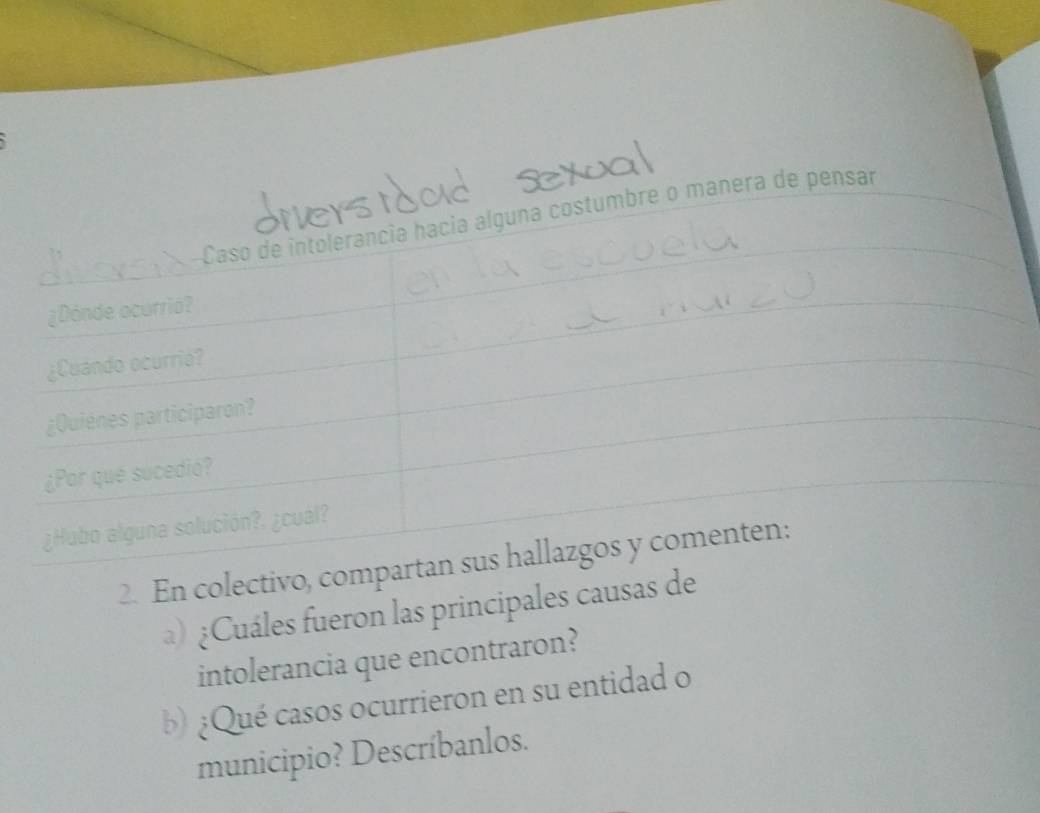 diversidad sexual
Caso de intolerancia hacia alguna costumbre o manera de pensar
¿Dónde ocurrió? en la escuela
¿Cuándo ocurrió?
¿Quiénes participaron?
¿Por qué sucedió?
¿Hubo alguna solución?, ¿cuál?
2. En colectivo, compartan sus hallazgos y comenten:
a) ¿Cuáles fueron las principales causas de
intolerancia que encontraron?
b) ¿Qué casos ocurrieron en su entidad o
municipio? Descríbanlos.